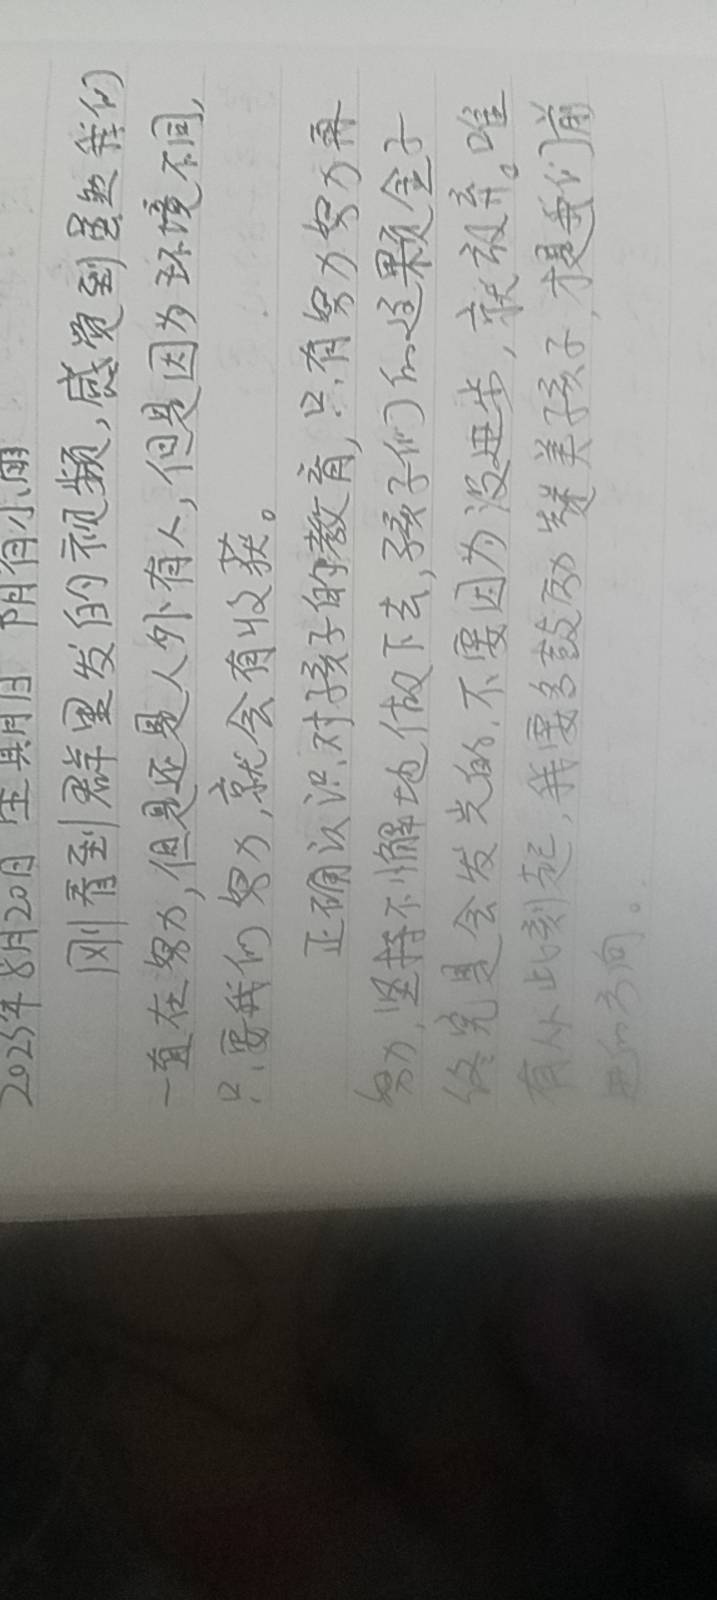 2025年8月20日 星期日 阴有小雨
刚看到群里发的视频,感觉到虽然我们
一直在努力,但是还是人外有人,但是因为环境不同,
只要我们努力,就会有收获。
正确认识对孩子的教育,只有努力努力再
努力,坚持不懈地做下去,孩子们的这颗金子
终究是会发光的,不要因为没进步,就放弃。唯
有从此刻起,我要多鼓励赞美孩子,才是我们前
进的方向。